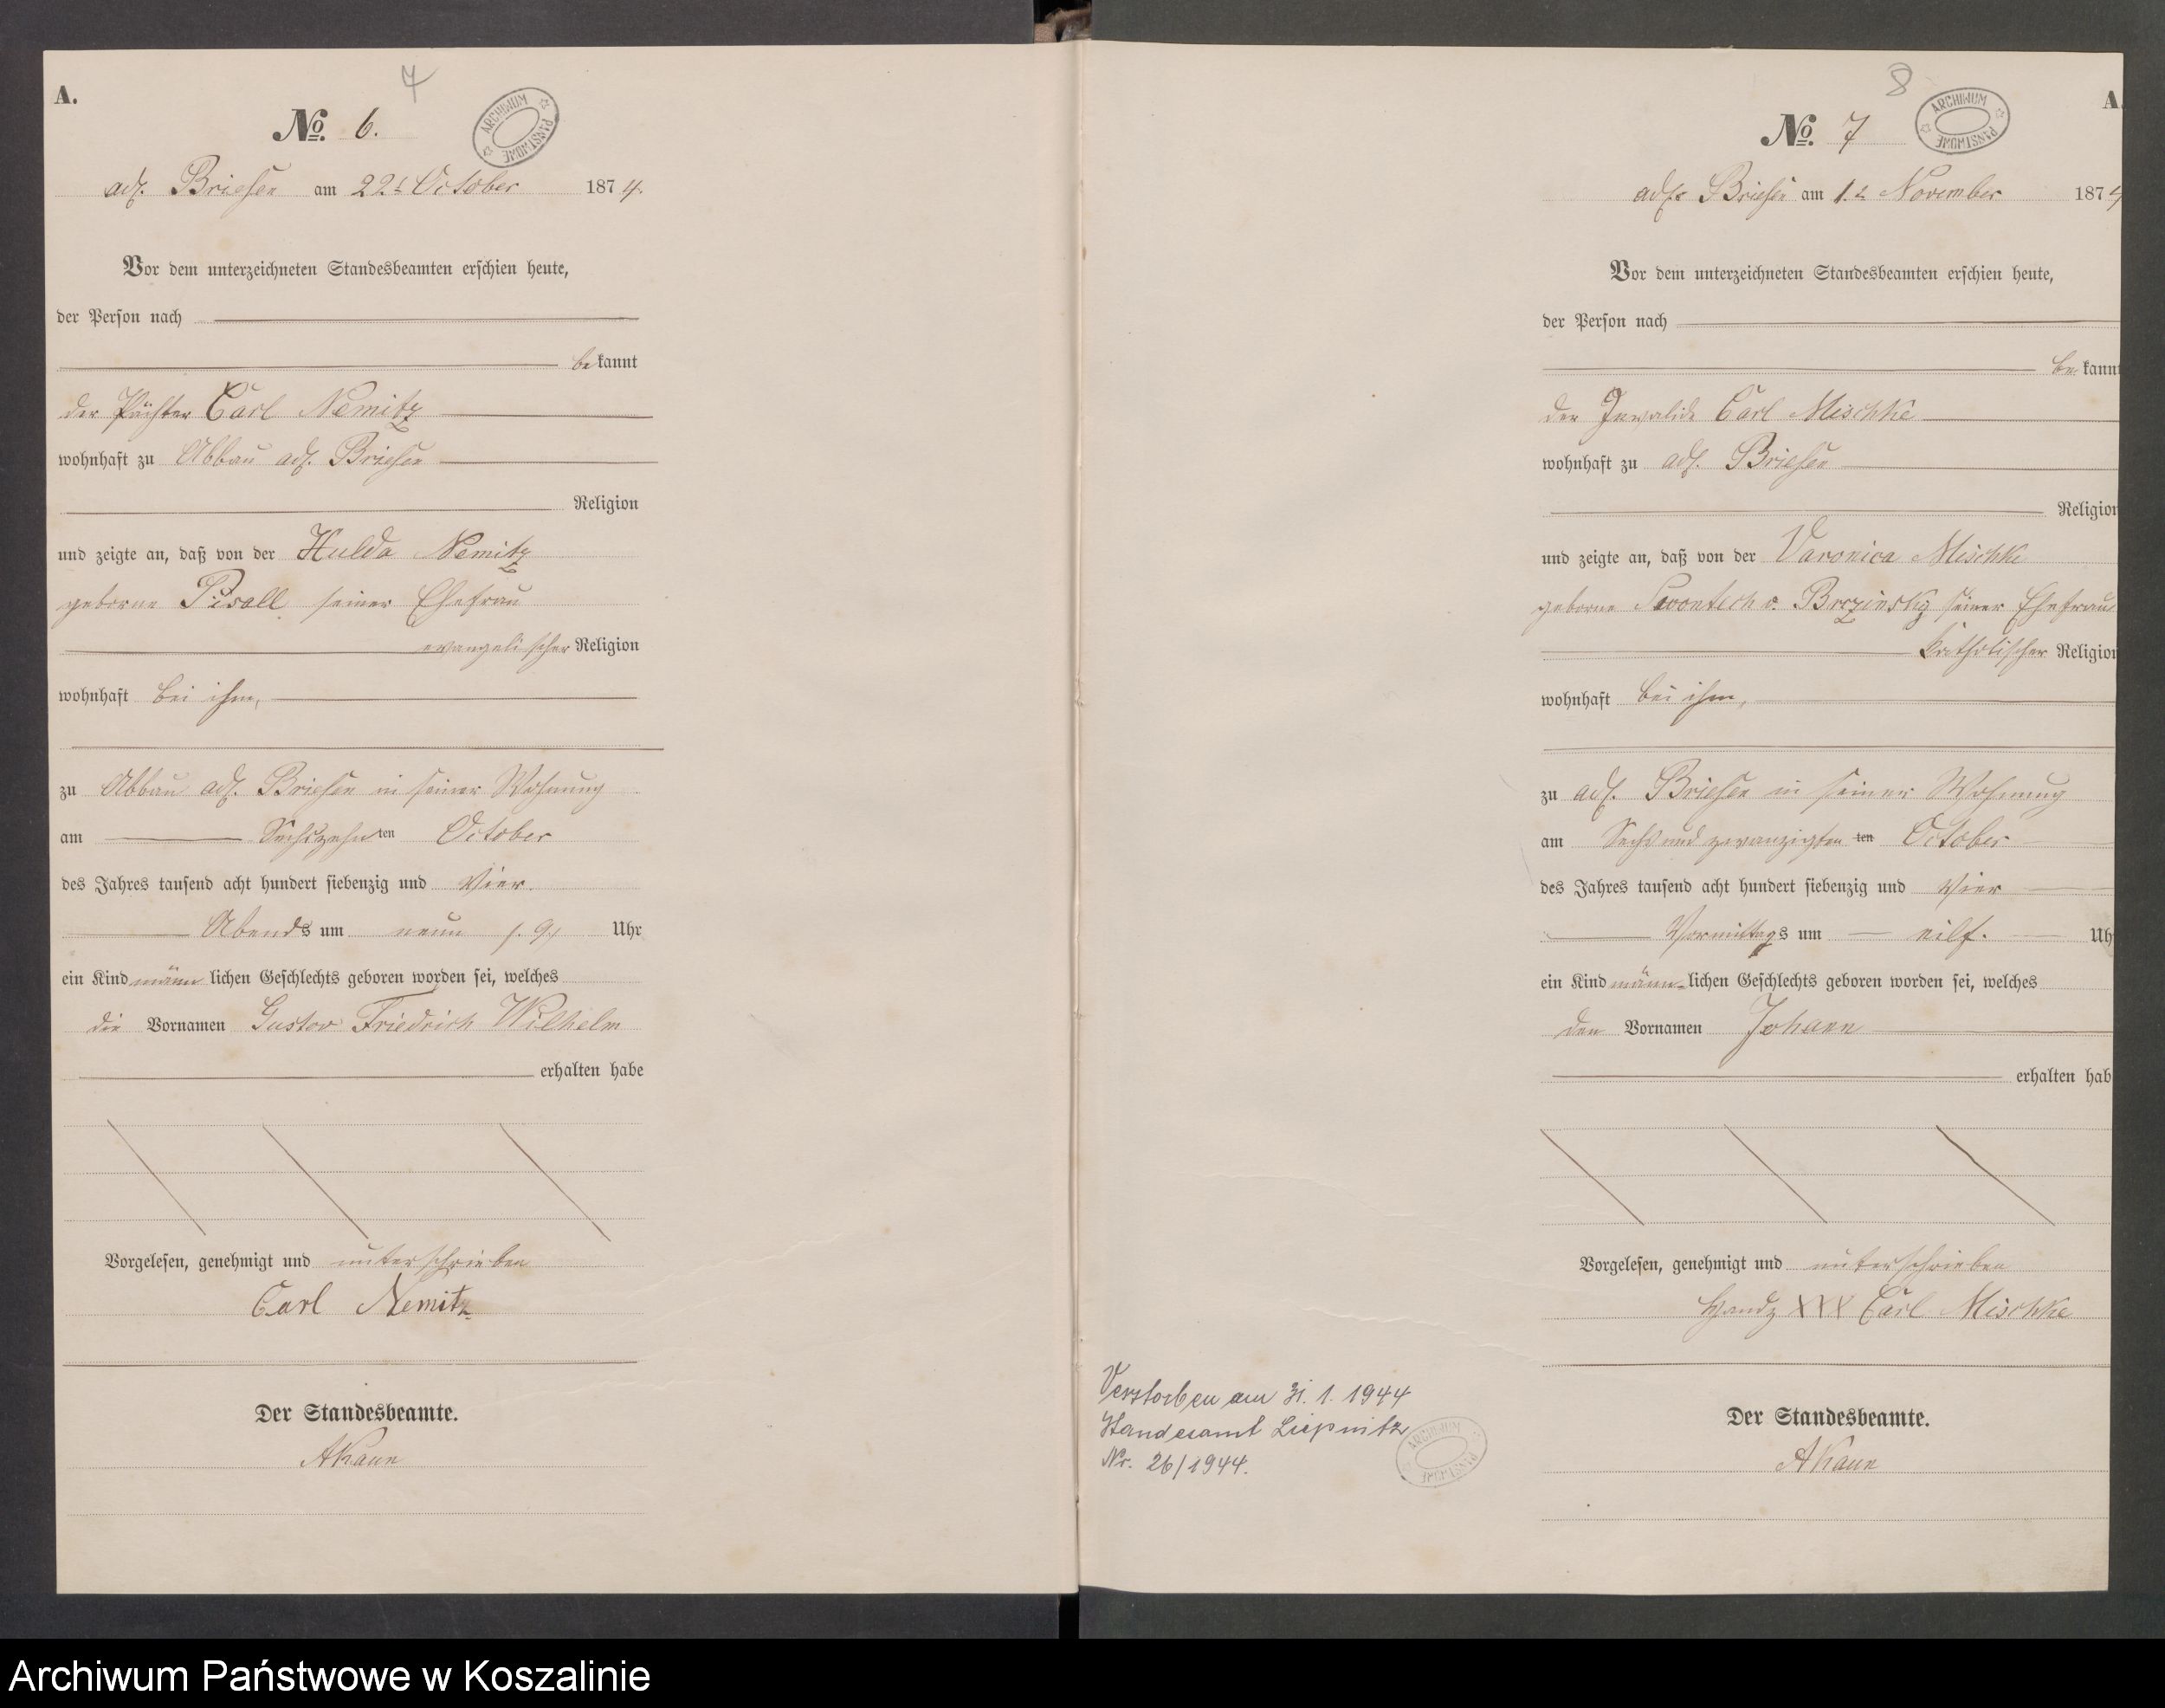 A.
7
No. 6.
ARCHIWUM PAŃSTWOWE
adl. Briesen am 22t October 1874.
Vor dem unterzeichneten Standesbeamten erschien heute,
der Person nach
bekannt
der Pächter Carl Nemitz
wohnhaft zu Abbau adl. Briesen
Religion
und zeigte an, daß von der Hulda Nemitz
geborne seiner Ehefrau
evangelischer Religion
wohnhaft bei ihm,
zu Abbau adl. Briesen in seiner Wohnung
am Sechszehnten October
des Jahres tausend acht hundert siebenzig und vier
Abends um neun /.9./ Uhr
ein Kind männlichen Geschlechts geboren worden sei, welches
die Vornamen Gustav Friedrich Wilhelm
erhalten habe
Vorgelesen, genehmigt und unterschrieben
Carl Nemitz
Der Standesbeamte.
AKaun
8
A.
No. 7
ARCHIWUM PAŃSTWOWE
adl. Briesen am 1t November 1874
Vor dem unterzeichneten Standesbeamten erschien heute,
der Person nach
bekannt
der Invalide Carl Mischke
wohnhaft zu adl. Briesen
Religion
und zeigte an, daß von der Varonica Mischke
geborne v. Brczinsky seiner Ehefrau
katholischer Religion
wohnhaft bei ihm,
zu adl. Briesen in seiner Wohnung
am Sechs und zwanzigsten ten October
des Jahres tausend acht hundert siebenzig und vier
Vormittags um eilf. Uh
ein Kind männlichen Geschlechts geboren worden sei, welches
den Vornamen Johann
erhalten hab
Vorgelesen, genehmigt und unterschrieben
Handz XXX Carl Mischke
Der Standesbeamte.
AKaun
Verstorben am 31.1.1944
Standesamt Liepnitz
Nr. 26/1944.
ARCHIWUM PAŃSTWOWE
Archiwum Państwowe w Koszalinie